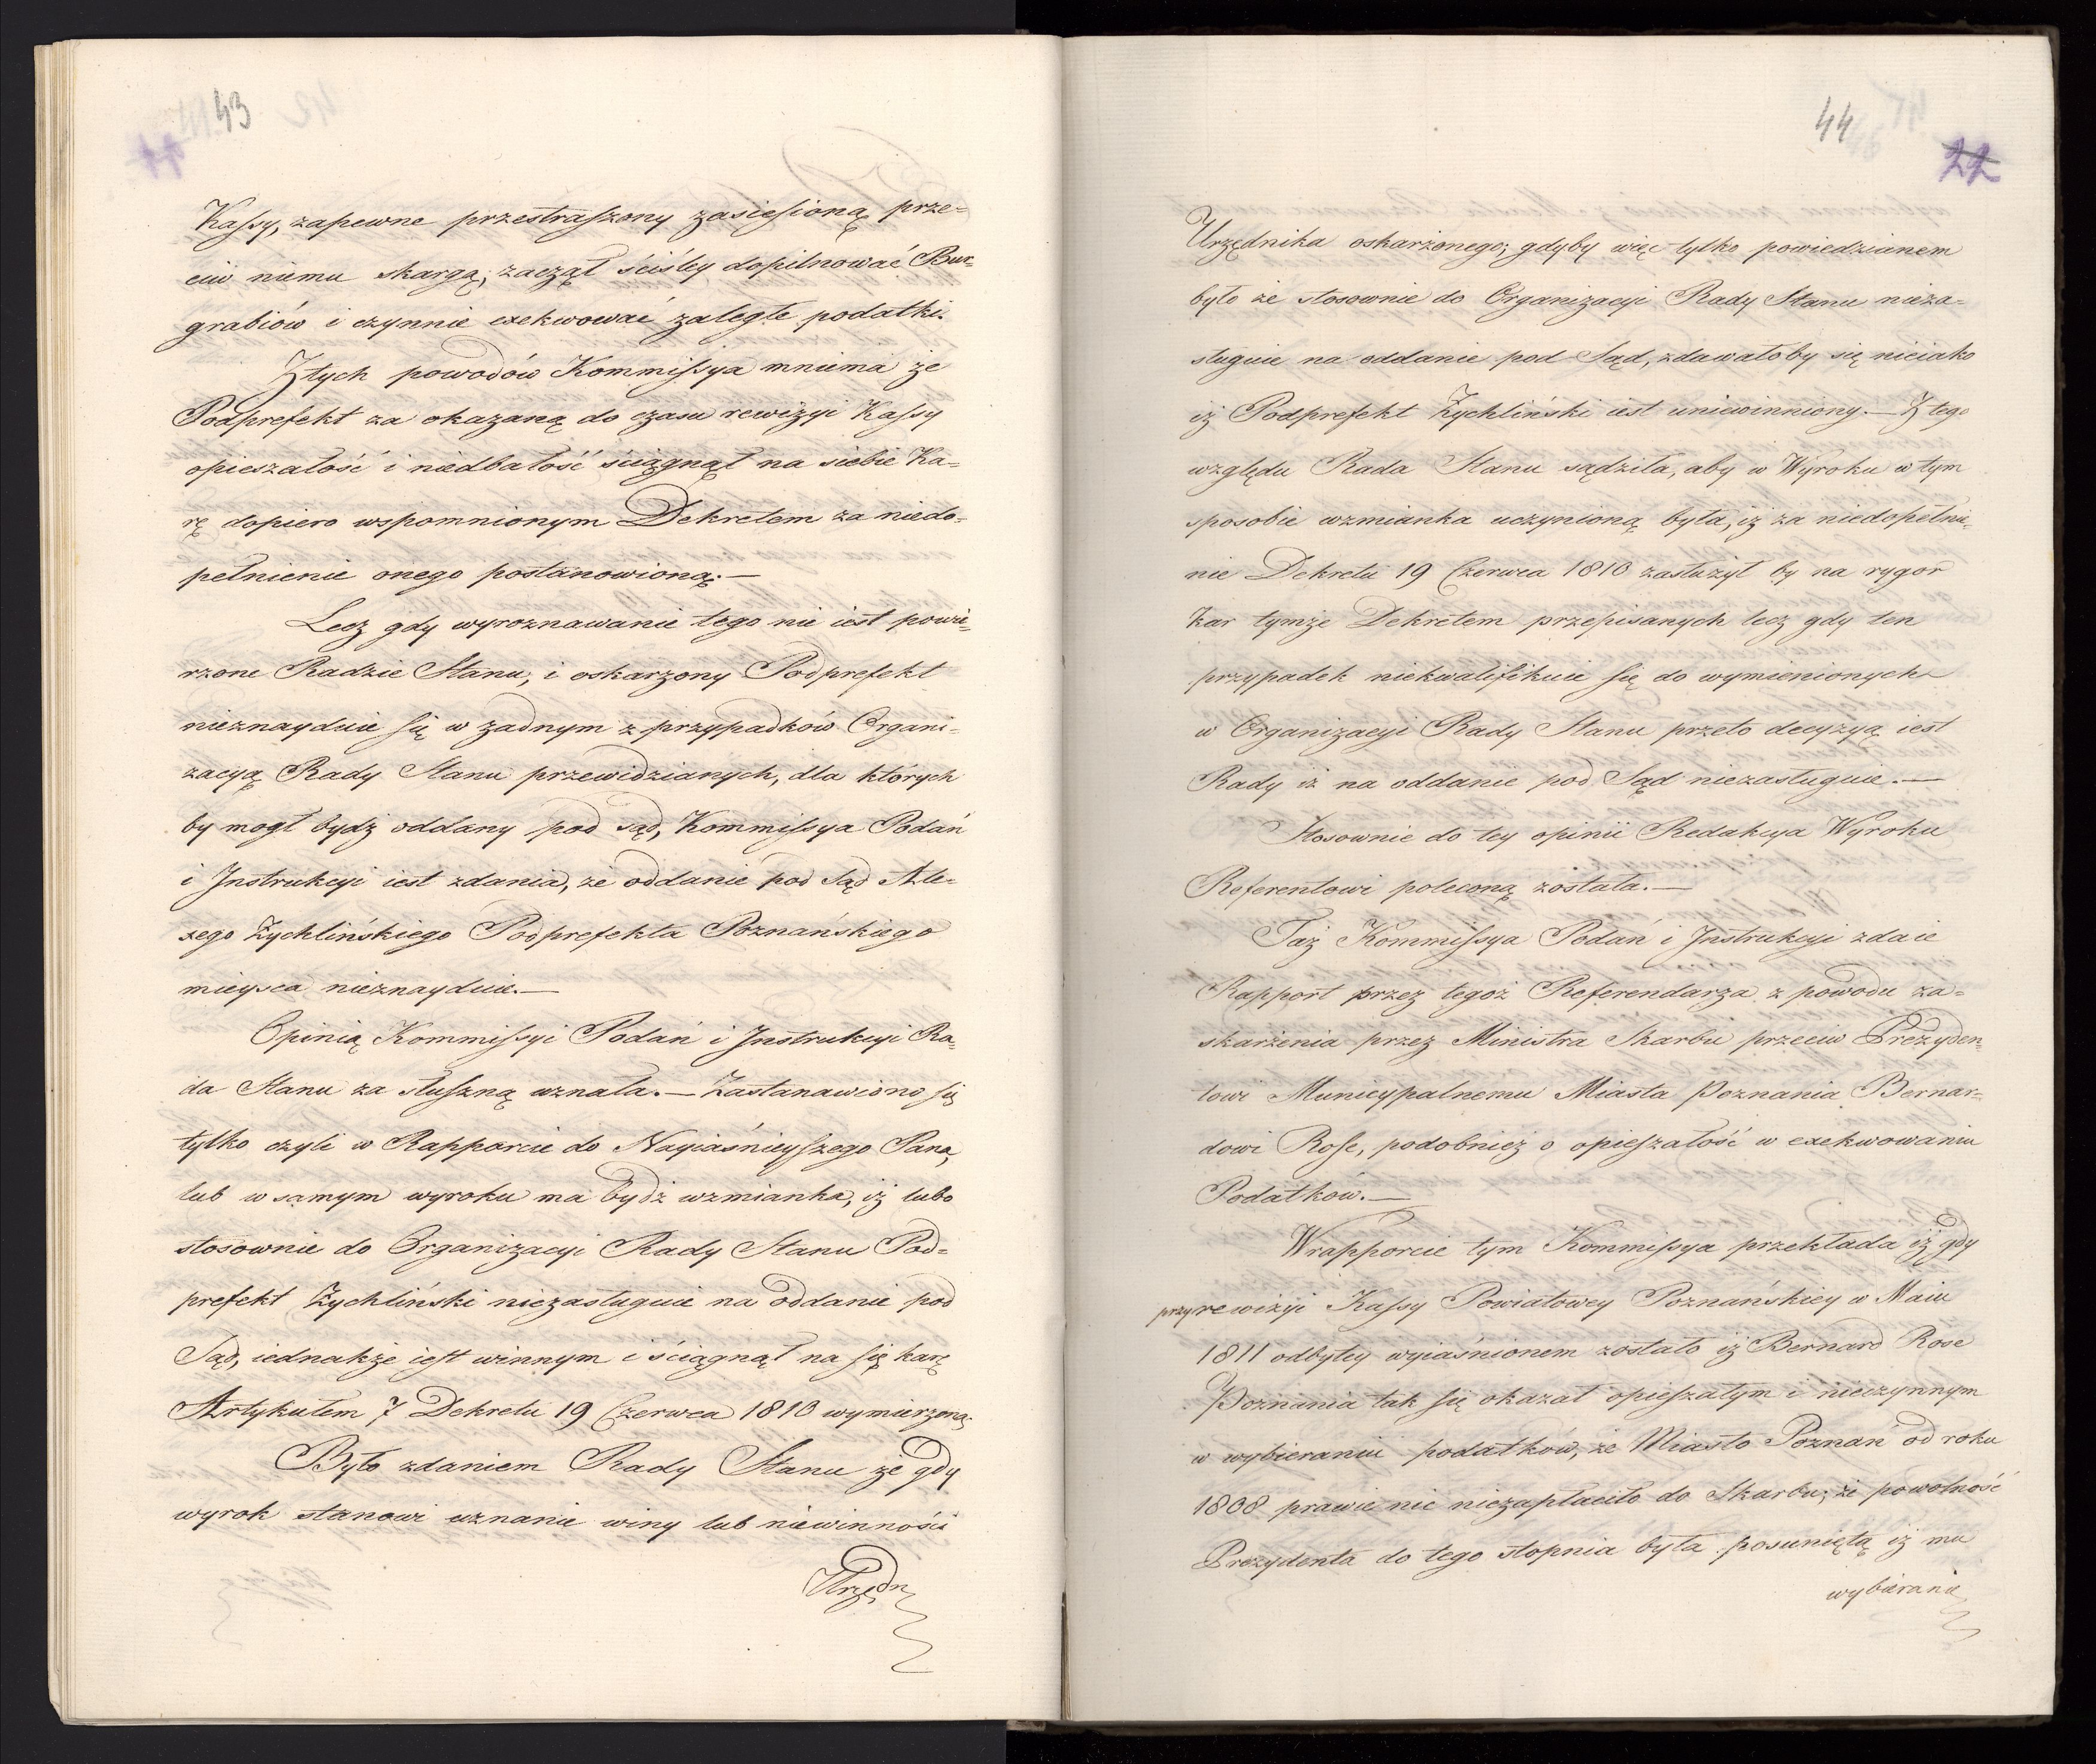 43
Kassy, zapewne przestraszony zasiesioną prze=
ciw niemu skargą, zaczął ściśley dopilnować Bur=
grabiów i czynnie exekwować zaległe podatki.
Z tych powodów Kommissya mniema że
Podprefekt za okazaną do czasu rewizyi Kassy
opieszałość i niedbałość ściągnął na siebie Ka=
rę dopiero wspomnionym Dekretem za niedo=
pełnienie onego postanowioną.—
Lecz gdy wyroznawanie tego nie iest powie=
rzone Radzie Stanu, i oskarzony Podprefekt
nieznayduie się w żadnym z przypadków Organi=
zacyą Rady Stanu przewidzianych, dla których
by mogł bydź oddany pod sąd, Kommissya Podań
i Instrukcyi iest zdania, że oddanie pod Sąd Ale=
xego Zychlińskiego Podprefekta Poznańskiego
mieysca nieznayduie.—
Opinią Kommissyi Podań i Instrukcyi Ra=
da Stanu za słuszną uznała.— Zastanawiono się
tylko czyli w Rapporcie do Nayiaśnieyszego Pana,
lub w samym wyroku ma bydź wzmianka, iż lubo
stosownie do Organizacyi Rady Stanu Pod=
prefekt Zychliński niezasługuie na oddanie pod
Sąd, iednakże iest winnym i ściągnął na się karę
Artykułem 7 Dekretu 19 Czerwca 1810 wymierzoną.
Było zdaniem Rady Stanu że gdy
wyrok stanowi uznanie winy lub niewinności
Urzędn
44
22
Urzędnika oskarżonego; gdyby więc tylko powiedzianem
było że stosownie do Organizacyi Rady Stanu nieza=
sługuie na oddanie pod Sąd, zdawałoby się nieiako
iż Podprefekt Zychliński iest uniewinniony.— Z tego
względu Rada Stanu sądziła, aby w Wyroku w tym
sposobie wzmianka uczynioną była, iż za niedopełnie=
nie Dekretu 19 Czerwca 1810 zasłużył by na rygor
kar tymże Dekretem przepisanych lecz gdy ten
przypadek niekwalifikuie się do wymienionych
w Organizacyi Rady Stanu przeto decyzyą iest
Rady iż na oddanie pod Sąd niezasługuie.—
Stosownie do tey opinii Redakcya Wyroku
Referentowi poleconą została.—
Taż Kommissya Podań i Instrukcyi zdaie
Rapport przez tegoż Referendarza z powodu za=
skarżenia przez Ministra Skarbu przeciw Prezyden=
towi Municypalnemu Miasta Poznania Bernar=
dowi Rose, podobnież o opieszałość w exekwowaniu
Podatkow.—
W rapporcie tym Kommissya przekłada iż gdy
przy rewizyi Kassy Powiatowey Poznańskiey w Maiu
1811 odbytey wyiaśnionem zostało iż Bernard Rose
Poznania tak się okazał opieszałym i nieczynnym
w wybieraniu podatków, że Miasto Poznań od roku
1808 prawie nic niezapłaciło do Skarbu; że powolność
Prezydenta do tego stopnia była posuniętą iż mu
wybierania